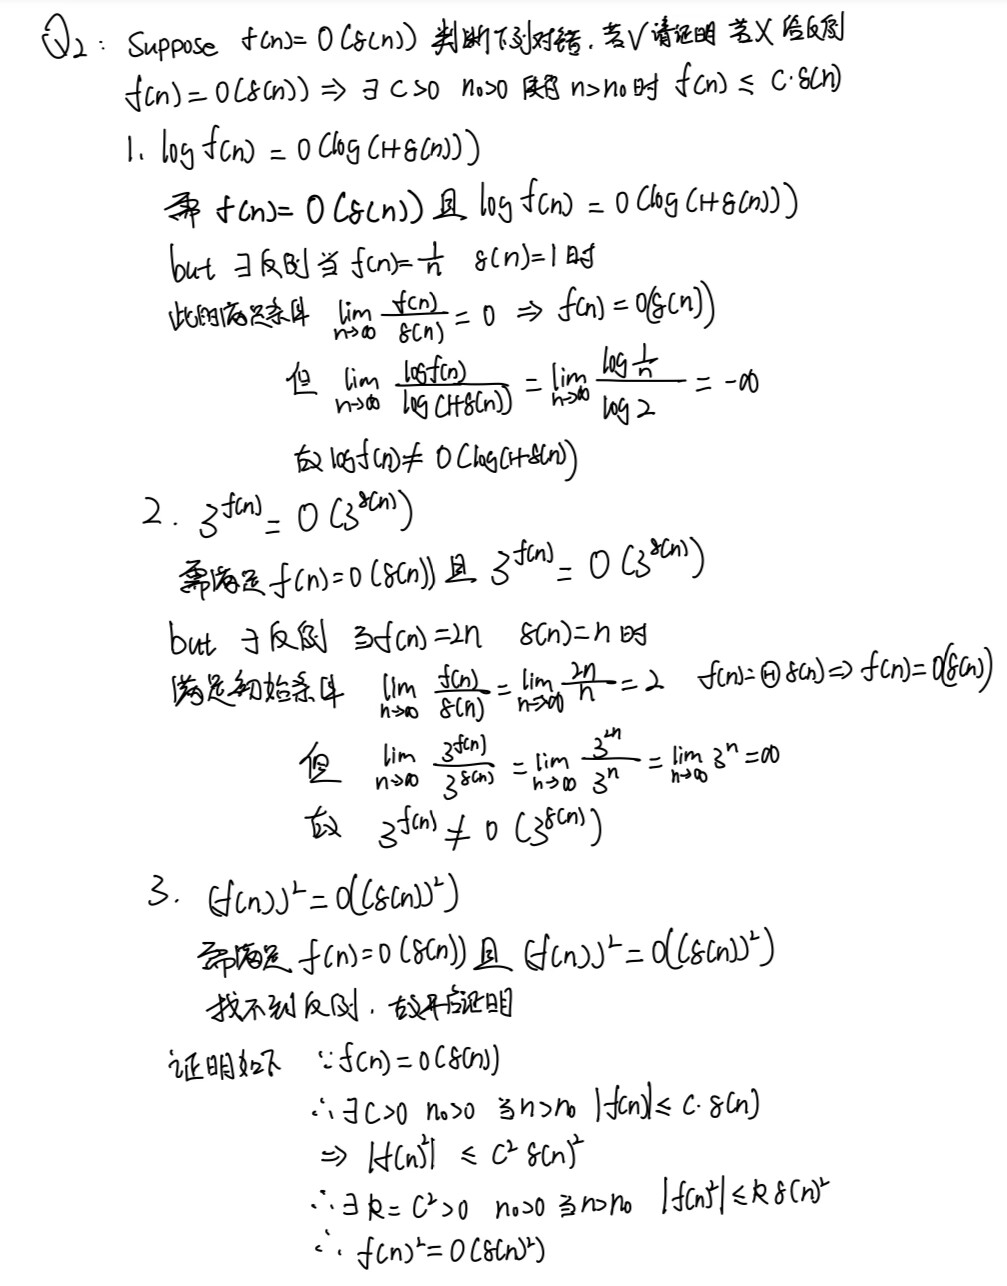 Q2: Suppose f(n)=O(g(n)) 判断下列对错,若√请证明 若X给反例
f(n)=O(g(n)) ⇒ ∃ C>0 n₀>0 n>n₀时 f(n) ≤ C·g(n)
1. log f(n) = O(log(1+g(n)))
需 f(n)=O(g(n)) 且 log f(n) = O(log(1+g(n)))
but ∃反例当 f(n)=1/n g(n)=1时
此时满足条件 lim n→∞ f(n)/g(n) = 0 ⇒ f(n)=O(g(n))
但 lim n→∞ logf(n)/log(1+g(n)) = lim n→∞ log 1/n / log 2 = -∞
故 logf(n) ≠ O(log(1+g(n)))
2. 3^f(n) = O(3^g(n))
需满足 f(n)=O(g(n)) 且 3^f(n) = O(3^g(n))
but ∃反例 当f(n)=2n g(n)=n时
满足初始条件 lim n→∞ f(n)/g(n) = lim n→∞ 2n/n = 2 f(n)=Θg(n) ⇒ f(n)=O(g(n))
但 lim n→∞ 3^f(n)/3^g(n) = lim n→∞ 3^2n/3^n = lim n→∞ 3^n = ∞
故 3^f(n) ≠ O(3^g(n))
3. (f(n))² = O((g(n))²)
需满足 f(n)=O(g(n)) 且 (f(n))² = O((g(n))²)
找不到反例,故开始证明
证明如下 ∵ f(n)=O(g(n))
∴ ∃C>0 n₀>0 当n>n₀ |f(n)| ≤ C·g(n)
⇒ |f(n)²| ≤ C² g(n)²
∴ ∃ k = C²>0 n₀>0 当n>n₀ |f(n)²| ≤ k g(n)²
∴ f(n)² = O(g(n)²)